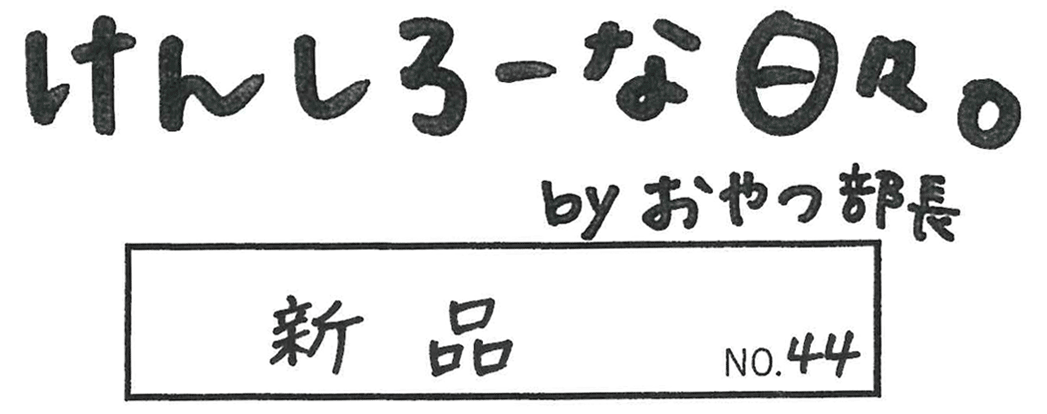 けんしろーな日々。
by おやつ部長
新品 NO.44